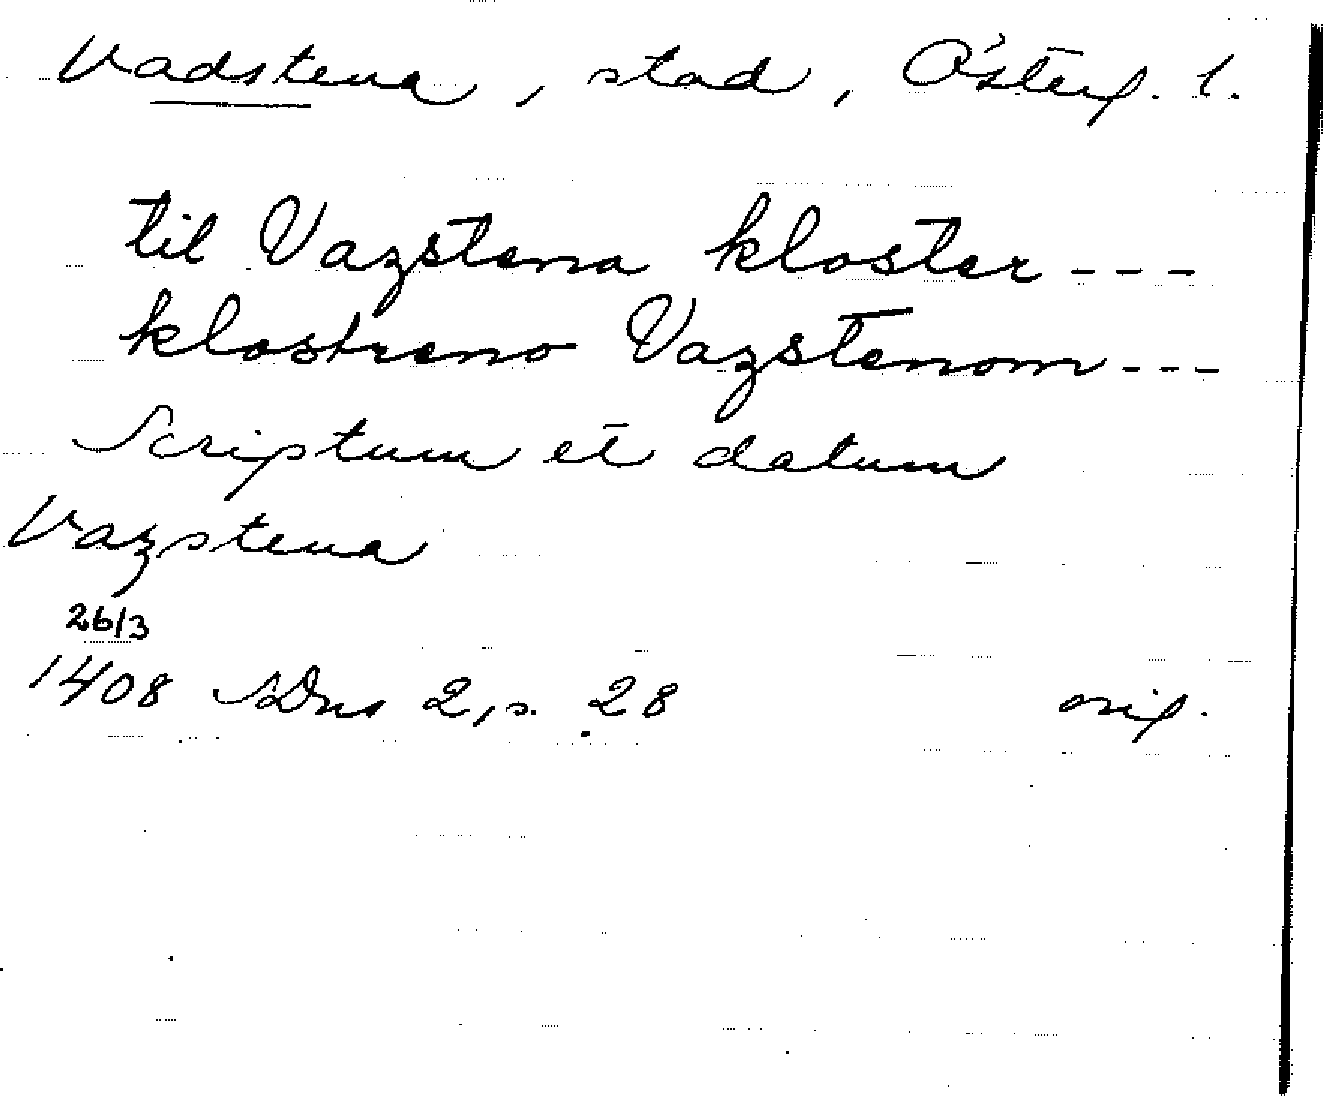 Vadstena, stad, Österg. l.
til Vazstena kloster ---
klostreno Vazstenom ---
Scriptum et datum
Vazstena
26/3
1408 SDns 2, s. 28 orig.